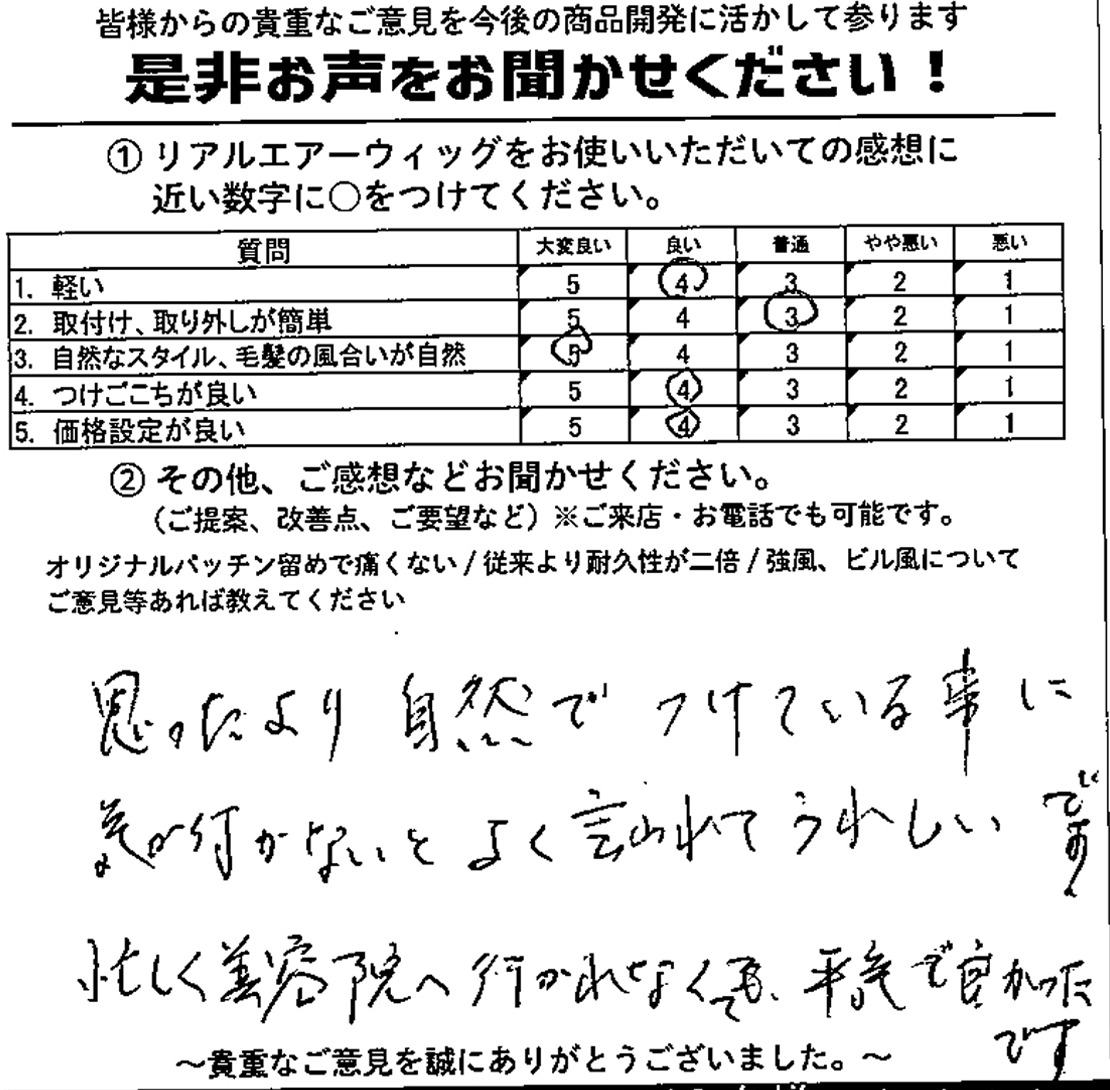 皆様からの貴重なご意見を今後の商品開発に活かして参ります
是非お声をお聞かせください！
① リアルエアーウィッグをお使いいただいての感想に
近い数字に○をつけてください。
質問 大変良い 良い 普通 やや悪い 悪い
1. 軽い 5 4 3 2 1
2. 取付け、取り外しが簡単 5 4 3 2 1
3. 自然なスタイル、毛髪の風合いが自然 5 4 3 2 1
4. つけごこちが良い 5 4 3 2 1
5. 価格設定が良い 5 4 3 2 1
② その他、ご感想などお聞かせください。
（ご提案、改善点、ご要望など）※ご来店・お電話でも可能です。
オリジナルパッチン留めで痛くない / 従来より耐久性が二倍 / 強風、ビル風について
ご意見等あれば教えてください
思ったより 自然で つけている事に
気が付かないと よく言われてうれしい
です。
忙しく美容院へ行かれなくても、平気で良かった
です
～貴重なご意見を誠にありがとうございました。～